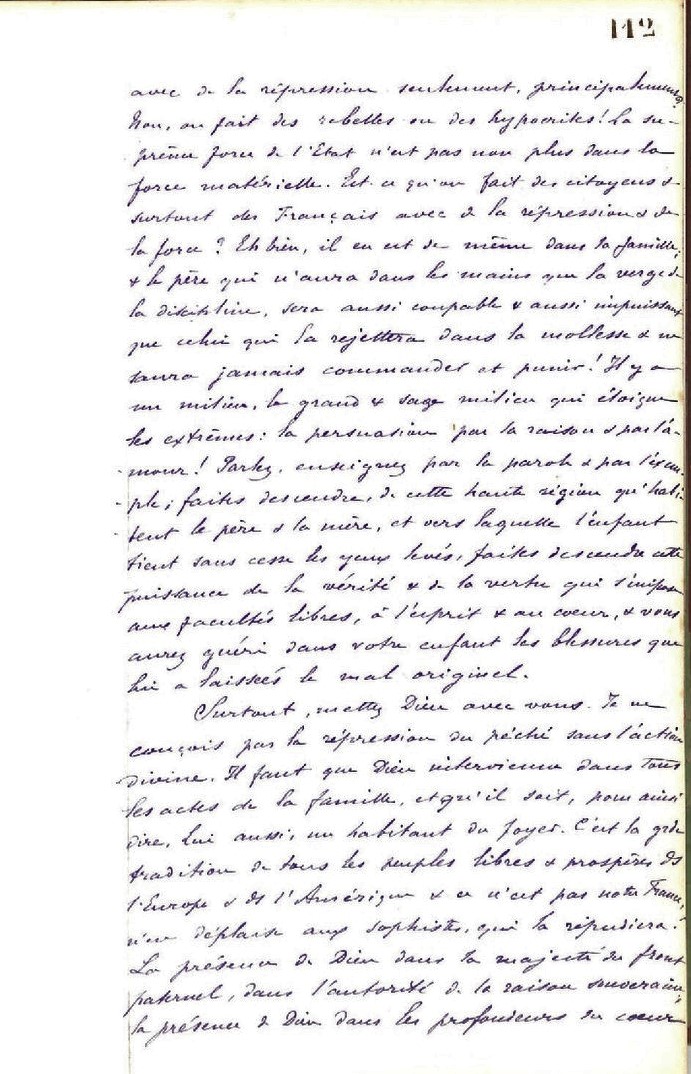 112
avec de la répression seulement, principalement?
Non, on fait des rebelles ou des hypocrites! La su-
prême force de l'Etat n'est pas non plus dans la
force matérielle. Est-ce qu'on fait des citoyens &
surtout des Français avec de la répression & de
la force? Eh bien, il en est de même dans la famille;
& le père qui n'aura dans les mains que la verge de
la discipline, sera aussi coupable & aussi impuissant
que celui qui la rejettera dans la mollesse & ne
saura jamais commander et punir! Il y a
un milieu, le grand & sage milieu qui éloigne
les extrêmes: la persuasion par la raison & par l'a-
-mour! Parlez, enseignez par la parole & par l'exem-
-ple; faites descendre, de cette haute région qu'habi-
-tent le père & la mère, et vers laquelle l'enfant
tient sans cesse les yeux levés, faites descendre cette
puissance de la vérité & de la vertu qui s'impose
aux facultés libres, à l'esprit & au coeur, & vous
aurez guéri dans votre enfant les blessures que
lui a laissées le mal originel.
Surtout, mettez Dieu avec vous. Je ne
conçois pas la répression du péché sans l'action
divine. Il faut que Dieu intervienne dans tous
les actes de la famille, et qu'il soit, pour ainsi
dire, lui aussi, un habitant du foyer. C'est la gde
tradition de tous les peuples libres & prospères de
l'Europe & de l'Amérique & ce n'est pas notre France,
n'en déplaise aux sophistes, qui la répudiera!
La présence de Dieu dans la majesté du front
paternel, dans l'autorité de la raison souveraine,
la présence de Dieu dans les profondeurs du coeur